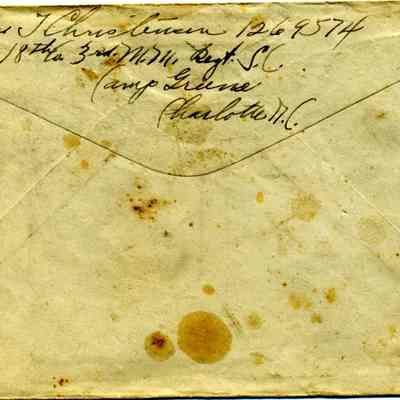 T Christensen 1269574
18th Co 3rd. M.M. Regt. S.C.
Camp Greene
Charlotte N.C.